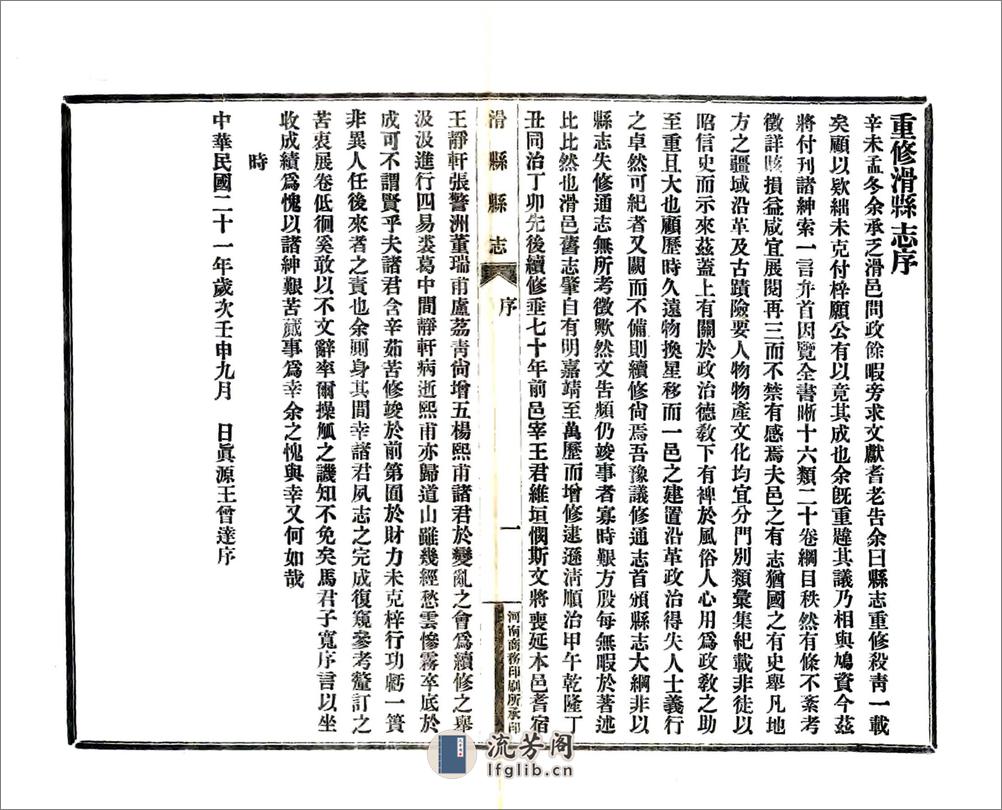 重修滑縣志序
辛未孟冬余承乏滑邑問政餘暇旁求文獻耆老告余曰縣志重修殺靑一載
矣顧以欵絀未克付梓願公有以竟其成也余旣重韙其議乃相與鳩資今茲
將付刊諸紳索一言弁首因覽全書晣十六類二十卷綱目秩然有條不紊考
徵詳賅損益咸宜展閱再三而不禁有感焉夫邑之有志猶國之有史舉凡地
方之疆域沿革及古蹟險要人物物產文化均宜分門別類彙集紀載非徒以
昭信史而示來茲蓋上有關於政治德敎下有裨於風俗人心用爲政敎之助
至重且大也顧歷時久遠物換星移而一邑之建置沿革政治得失人士義行
之卓然可紀者又闕而不備則續修尙焉吾豫議修通志首頒縣志大綱非以
縣志失修通志無所考徵歟然文告頻仍竣事者寡時艱方殷每無暇於著述
比比然也滑邑舊志肇自有明嘉靖至萬歷而增修逮遜淸順治甲午乾隆丁
丑同治丁卯先後續修垂七十年前邑宰王君維垣憫斯文將喪延本邑耆宿
滑縣志
序
一
河南商務印刷所承印
王靜軒張警洲董瑞甫盧荔靑尙增五楊熙甫諸君於變亂之會爲續修之舉
汲汲進行四易裘葛中間靜軒病逝熙甫亦歸道山雖幾經愁雲慘霧卒底於
成可不謂賢乎夫諸君含辛茹苦修竣於前第囿於財力未克梓行功虧一簣
非異人任後來者之責也余厠身其間幸諸君夙志之完成復窺參考釐訂之
苦衷展卷低徊奚敢以不文辭率爾操觚之譏知不免矣馬君子寬序言以坐
收成績爲愧以諸紳艱苦蕆事爲幸余之愧與幸又何如哉
時
中華民國二十一年歲次壬申九月 日眞源王曾達序
流芳阁
lfglib.cn